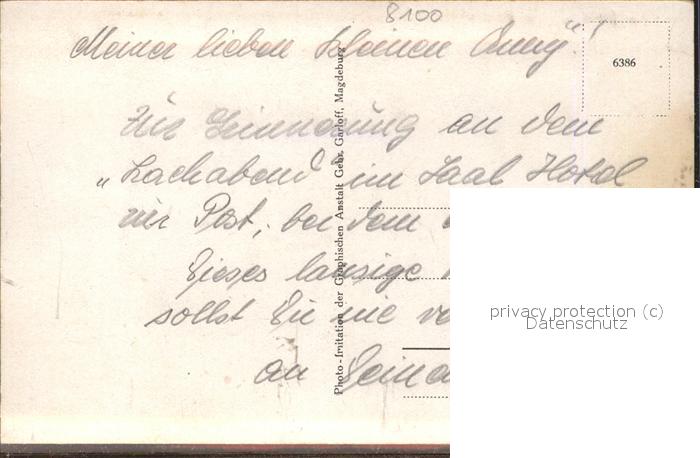 8100
Meiner lieben kleinen
6386
Zur Erinnerung an dem
„Lachabend" im Saal Hotel
zur Post, bei dem
Dieses lausige
sollst Du nie
an Deine
Photo-Imitation der Graphischen Anstalt Gebr. Garloff, Magdeburg
privacy protection (c)
Datenschutz